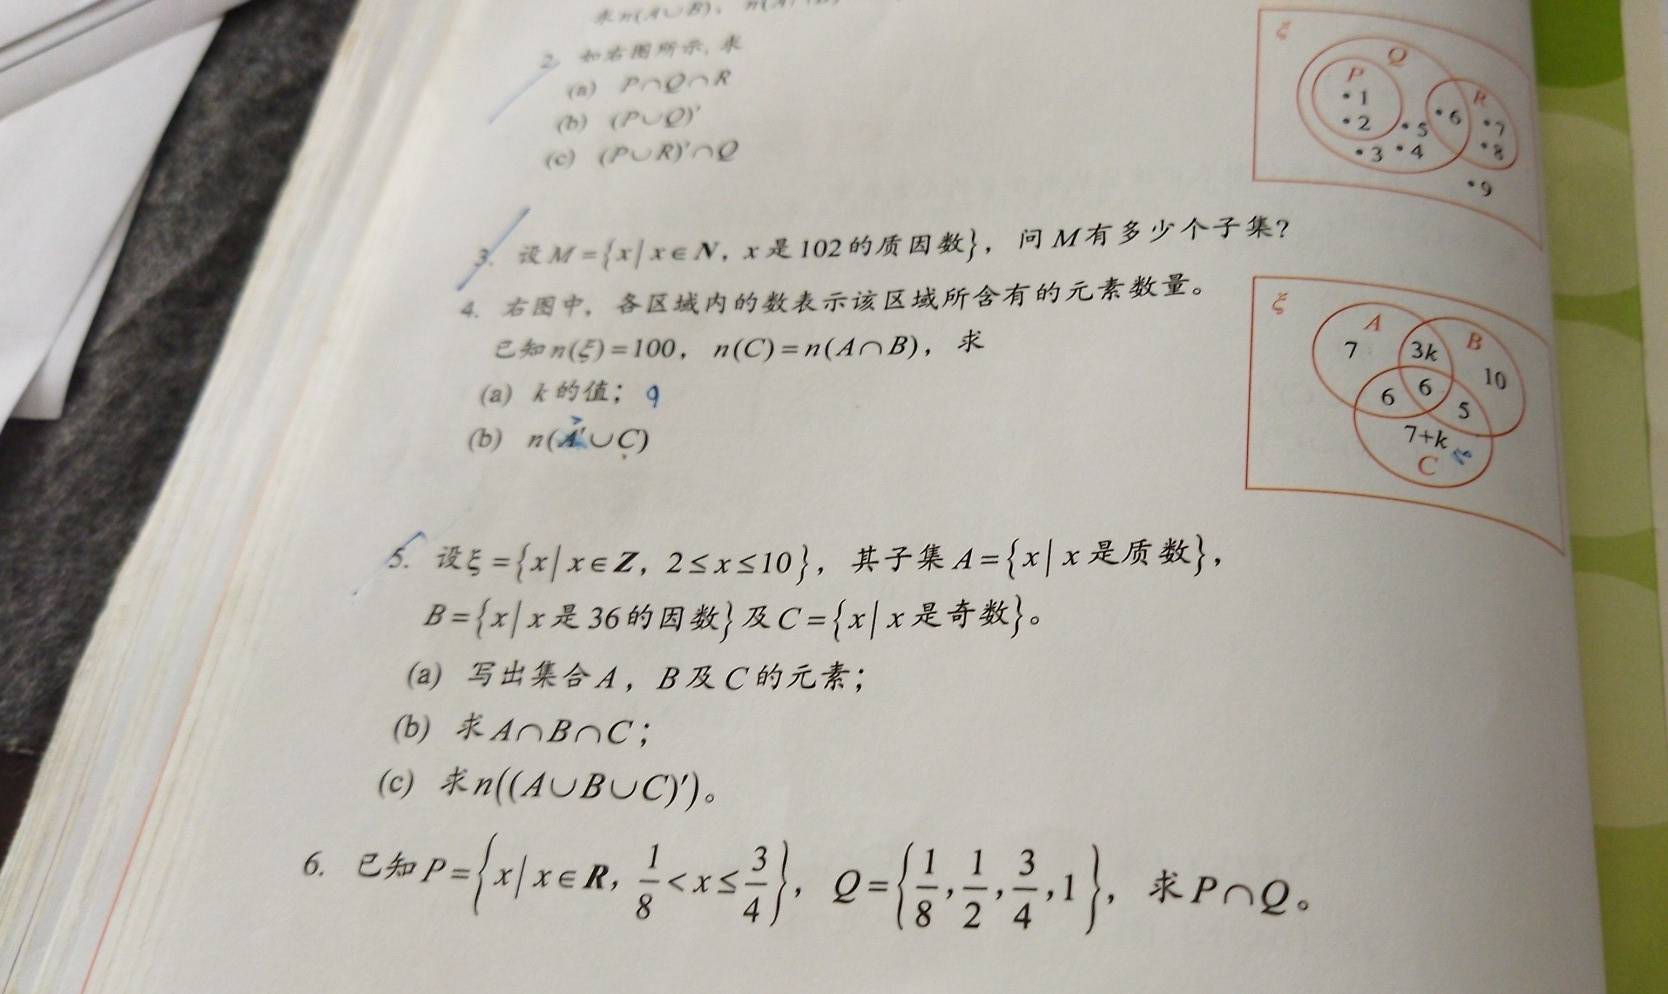 求n(A∪B),
2. 如右图所示, 求
(a) P∩Q∩R
(b) (P∪Q)'
(c) (P∪R)'∩Q
ξ
P
Q
R
•1
•2
•3
•4
•5
•6
•7
•8
•9
3. 设M={x|x∈N, x是102的质因数}, 问M有多少个子集?
4. 右图中, 各区域内的数表示该区域所含有的元素数量。
已知n(ξ)=100, n(C)=n(A∩B), 求
(a) k的值; 9
(b) n(A'∪C)
ξ
A
B
7
3k
10
6
6
5
7+k
C
5. 设ξ={x|x∈Z, 2≤x≤10}, 其子集A={x|x是质数},
B={x|x是36的因数}及C={x|x是奇数}。
(a) 写出集合A, B及C的元素;
(b) 求A∩B∩C;
(c) 求n((A∪B∪C)')。
6. 已知P={x|x∈R, 1/8<x≤3/4}, Q={1/8, 1/2, 3/4, 1}, 求P∩Q。